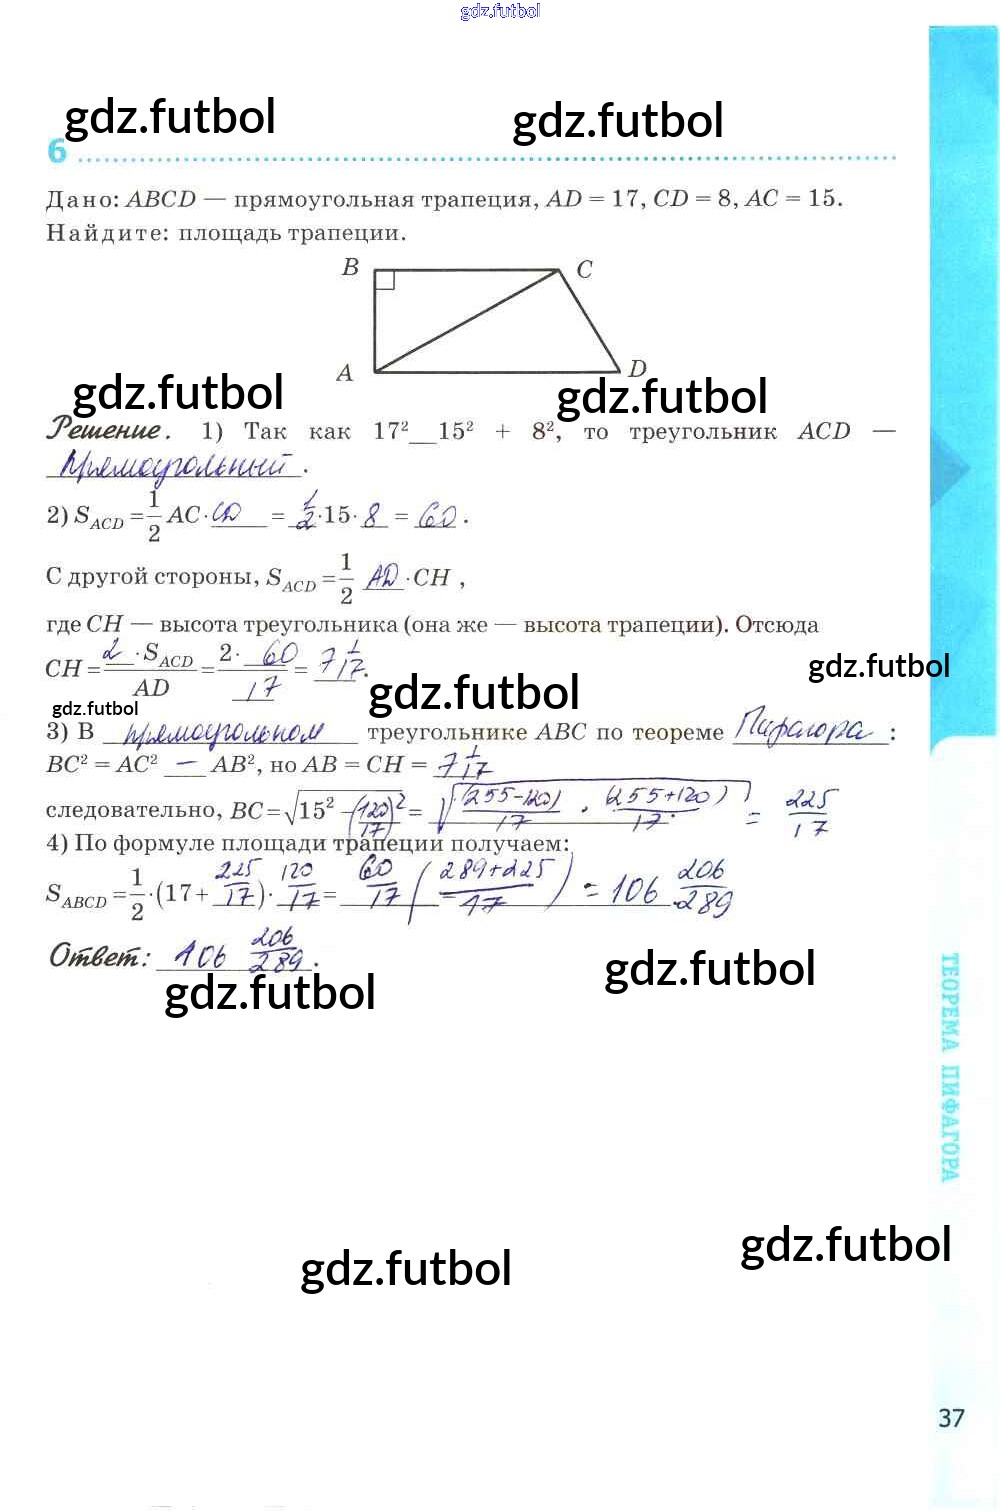 gdz.futbol
gdz.futbol
gdz.futbol
6
Дано: ABCD — прямоугольная трапеция, AD = 17, CD = 8, AC = 15.
Найдите: площадь трапеции.
B
C
A
D
gdz.futbol
gdz.futbol
Решение. 1) Так как 17² __ 15² + 8², то треугольник ACD —
прямоугольный.
2) S_ACD = 1/2 AC · CD = 1/2 · 15 · 8 = 60.
С другой стороны, S_ACD = 1/2 AD · CH,
где CH — высота треугольника (она же — высота трапеции). Отсюда
CH = 2 · S_ACD / AD = 2 · 60 / 17 = 7 1/17.
gdz.futbol
gdz.futbol
gdz.futbol
3) В прямоугольном треугольнике ABC по теореме Пифагора:
BC² = AC² − AB², но AB = CH = 7 1/17
следовательно, BC = √(15² − (120/17)²) = √((255−120)/17 · (255+120)/17) = 225/17
4) По формуле площади трапеции получаем:
S_ABCD = 1/2 · (17 + 225/17) · 120/17 = 60/17 (289+225/17) = 106 206/289
Ответ: 106 206/289.
gdz.futbol
gdz.futbol
ТЕОРЕМА ПИФАГОРА
gdz.futbol
gdz.futbol
37